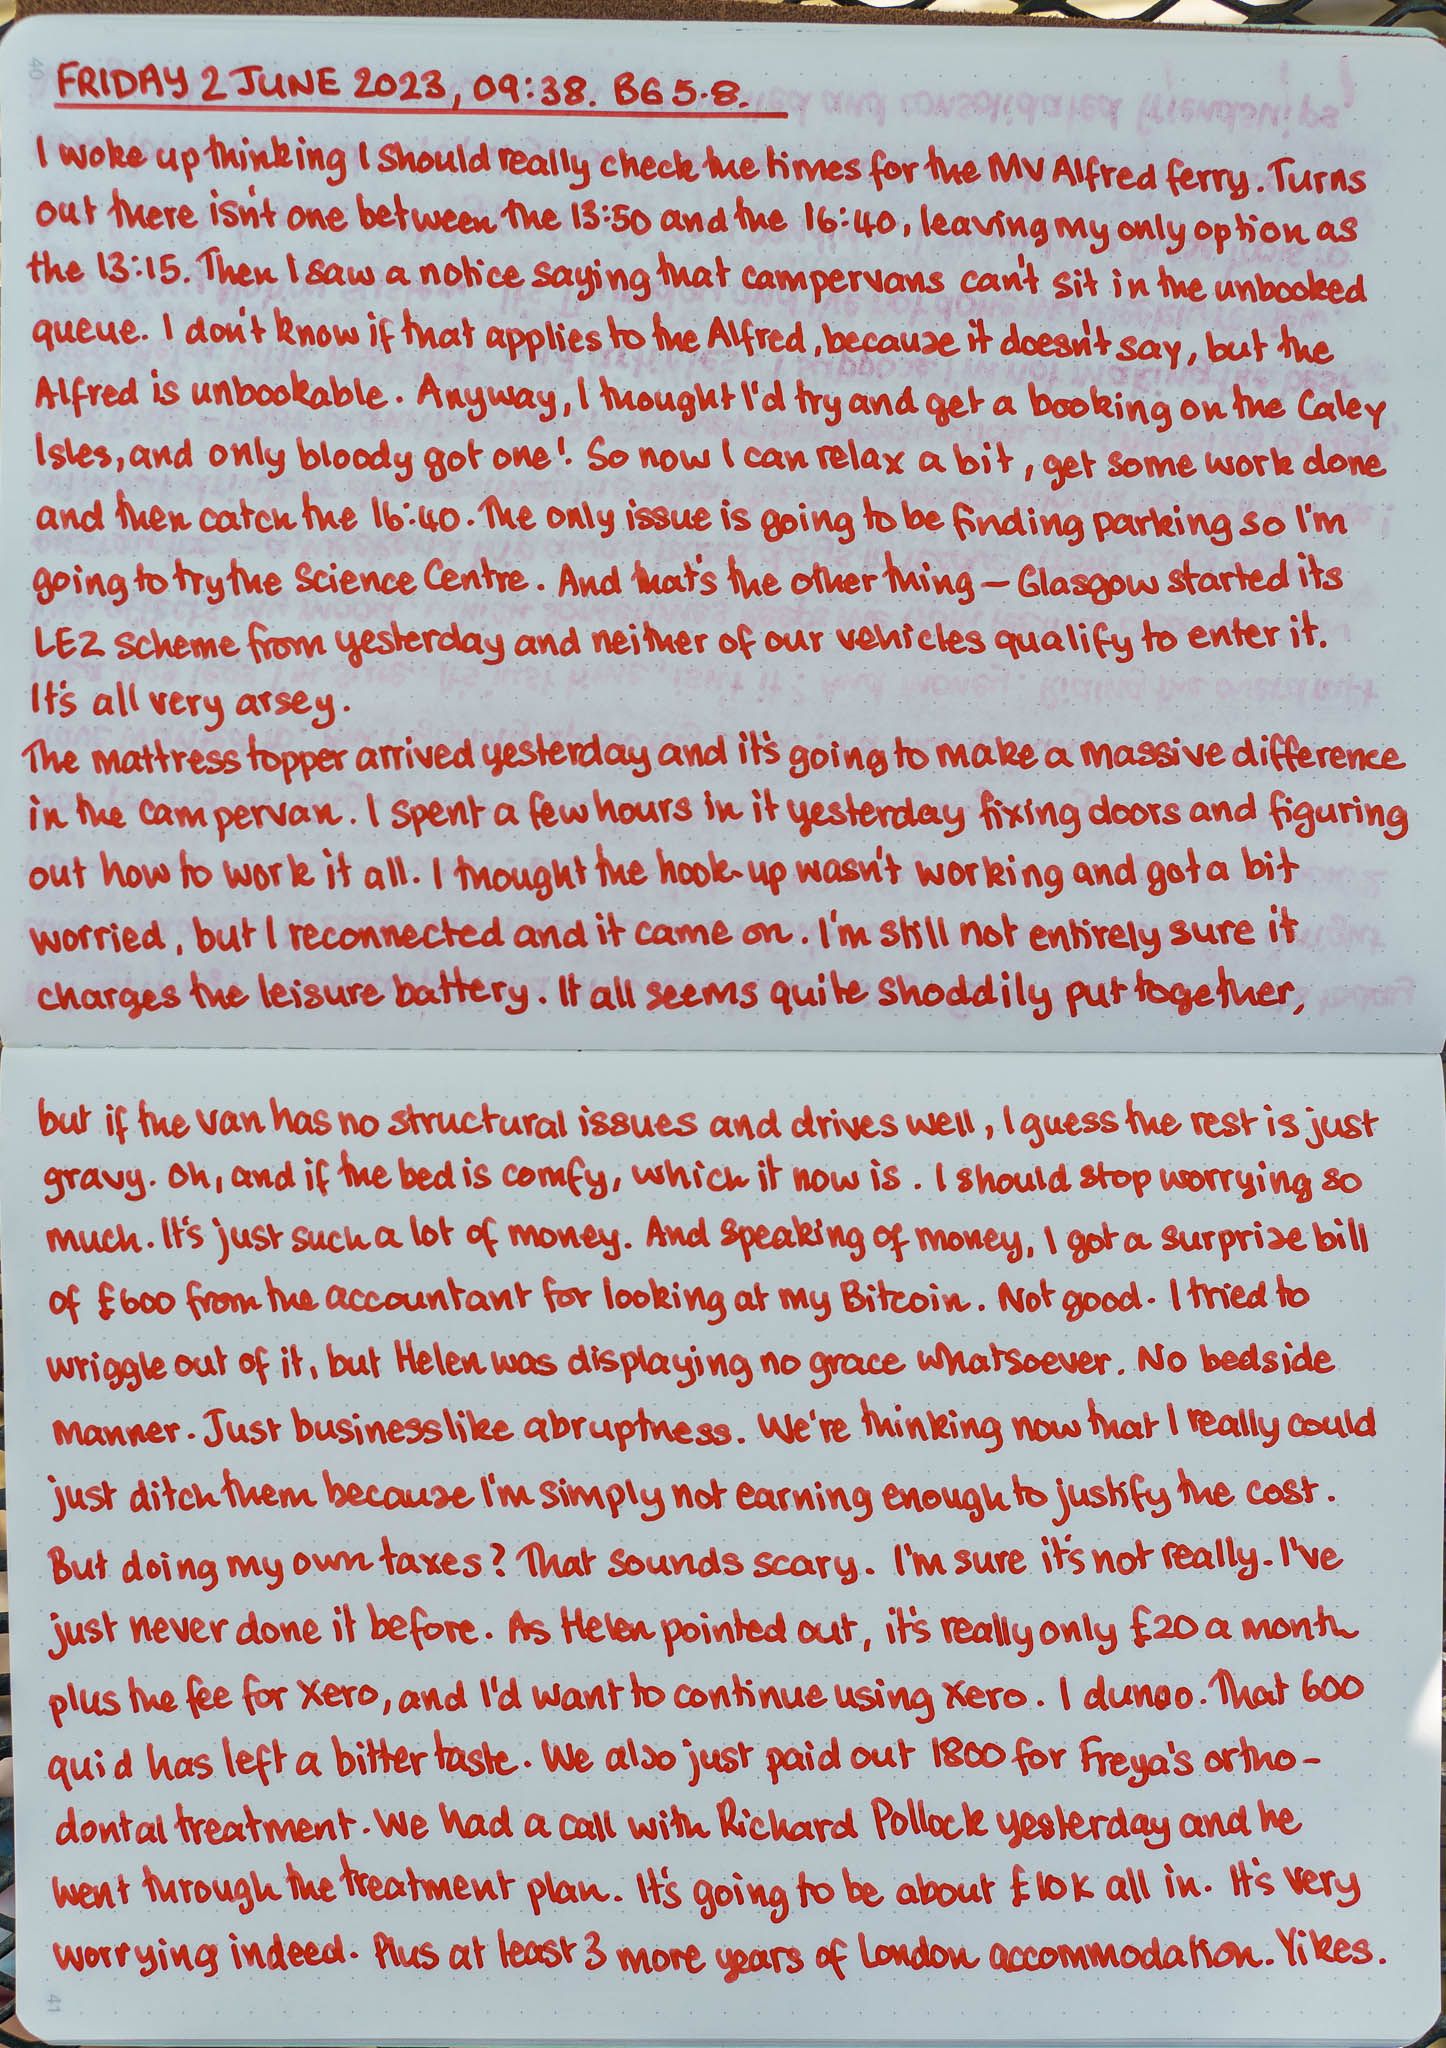 FRIDAY 2 JUNE 2023, 09:38. BG 5.8.
I woke up thinking I should really check the times for the MV Alfred ferry. Turns
out there isn't one between the 13:50 and the 16:40, leaving my only option as
the 13:15. Then I saw a notice saying that campervans can't sit in the unbooked
queue. I don't know if that applies to the Alfred, because it doesn't say, but the
Alfred is unbookable. Anyway, I thought I'd try and get a booking on the Caley
Isles, and only bloody got one! So now I can relax a bit, get some work done
and then catch the 16:40. The only issue is going to be finding parking so I'm
going to try the Science Centre. And that's the other thing – Glasgow started its
LEZ scheme from yesterday and neither of our vehicles qualify to enter it.
It's all very arsey.
The mattress topper arrived yesterday and it's going to make a massive difference
in the campervan. I spent a few hours in it yesterday fixing doors and figuring
out how to work it all. I thought the hook-up wasn't working and got a bit
worried, but I reconnected and it came on. I'm still not entirely sure it
charges the leisure battery. It all seems quite shoddily put together,
but if the van has no structural issues and drives well, I guess the rest is just
gravy. Oh, and if the bed is comfy, which it now is. I should stop worrying so
much. It's just such a lot of money. And speaking of money, I got a surprise bill
of £600 from the accountant for looking at my Bitcoin. Not good. I tried to
wriggle out of it, but Helen was displaying no grace whatsoever. No bedside
manner. Just businesslike abruptness. We're thinking now that I really could
just ditch them because I'm simply not earning enough to justify the cost.
But doing my own taxes? That sounds scary. I'm sure it's not really. I've
just never done it before. As Helen pointed out, it's really only £20 a month
plus the fee for Xero, and I'd want to continue using Xero. I dunoo. That 600
quid has left a bitter taste. We also just paid out 1800 for Freya's ortho-
dontal treatment. We had a call with Richard Pollock yesterday and he
went through the treatment plan. It's going to be about £10K all in. It's very
worrying indeed. Plus at least 3 more years of London accommodation. Yikes.
40
41